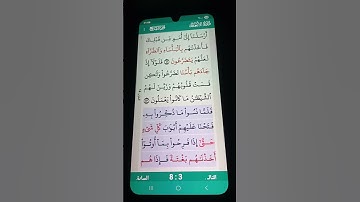 أَرْسَلْنَا إِلَىٰ أُمَمٍ مِّن قَبْلِكَ
فَأَخَذْنَاهُم بِالْبَأْسَاءِ وَالضَّرَّاءِ
لَعَلَّهُمْ يَتَضَرَّعُونَ فَلَوْلَا إِذْ
جَاءَهُم بَأْسُنَا تَضَرَّعُوا وَلَٰكِن
قَسَتْ قُلُوبُهُمْ وَزَيَّنَ لَهُمُ
الشَّيْطَانُ مَا كَانُوا يَعْمَلُونَ
فَلَمَّا نَسُوا مَا ذُكِّرُوا بِهِ
فَتَحْنَا عَلَيْهِمْ أَبْوَابَ كُلِّ شَيْءٍ
حَتَّىٰ إِذَا فَرِحُوا بِمَا أُوتُوا
أَخَذْنَاهُم بَغْتَةً فَإِذَا هُم
8:3